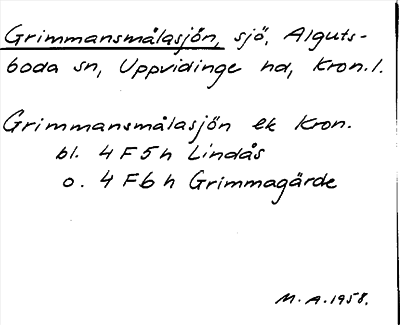 Grimmansmålasjön, sjö, Alguts-
boda sn, Uppvidinge hd, Kron.l.
Grimmansmålasjön ek Kron.
bl. 4 F 5 h Lindås
o. 4 F 6 h Grimmagärde
M.A. 1958.